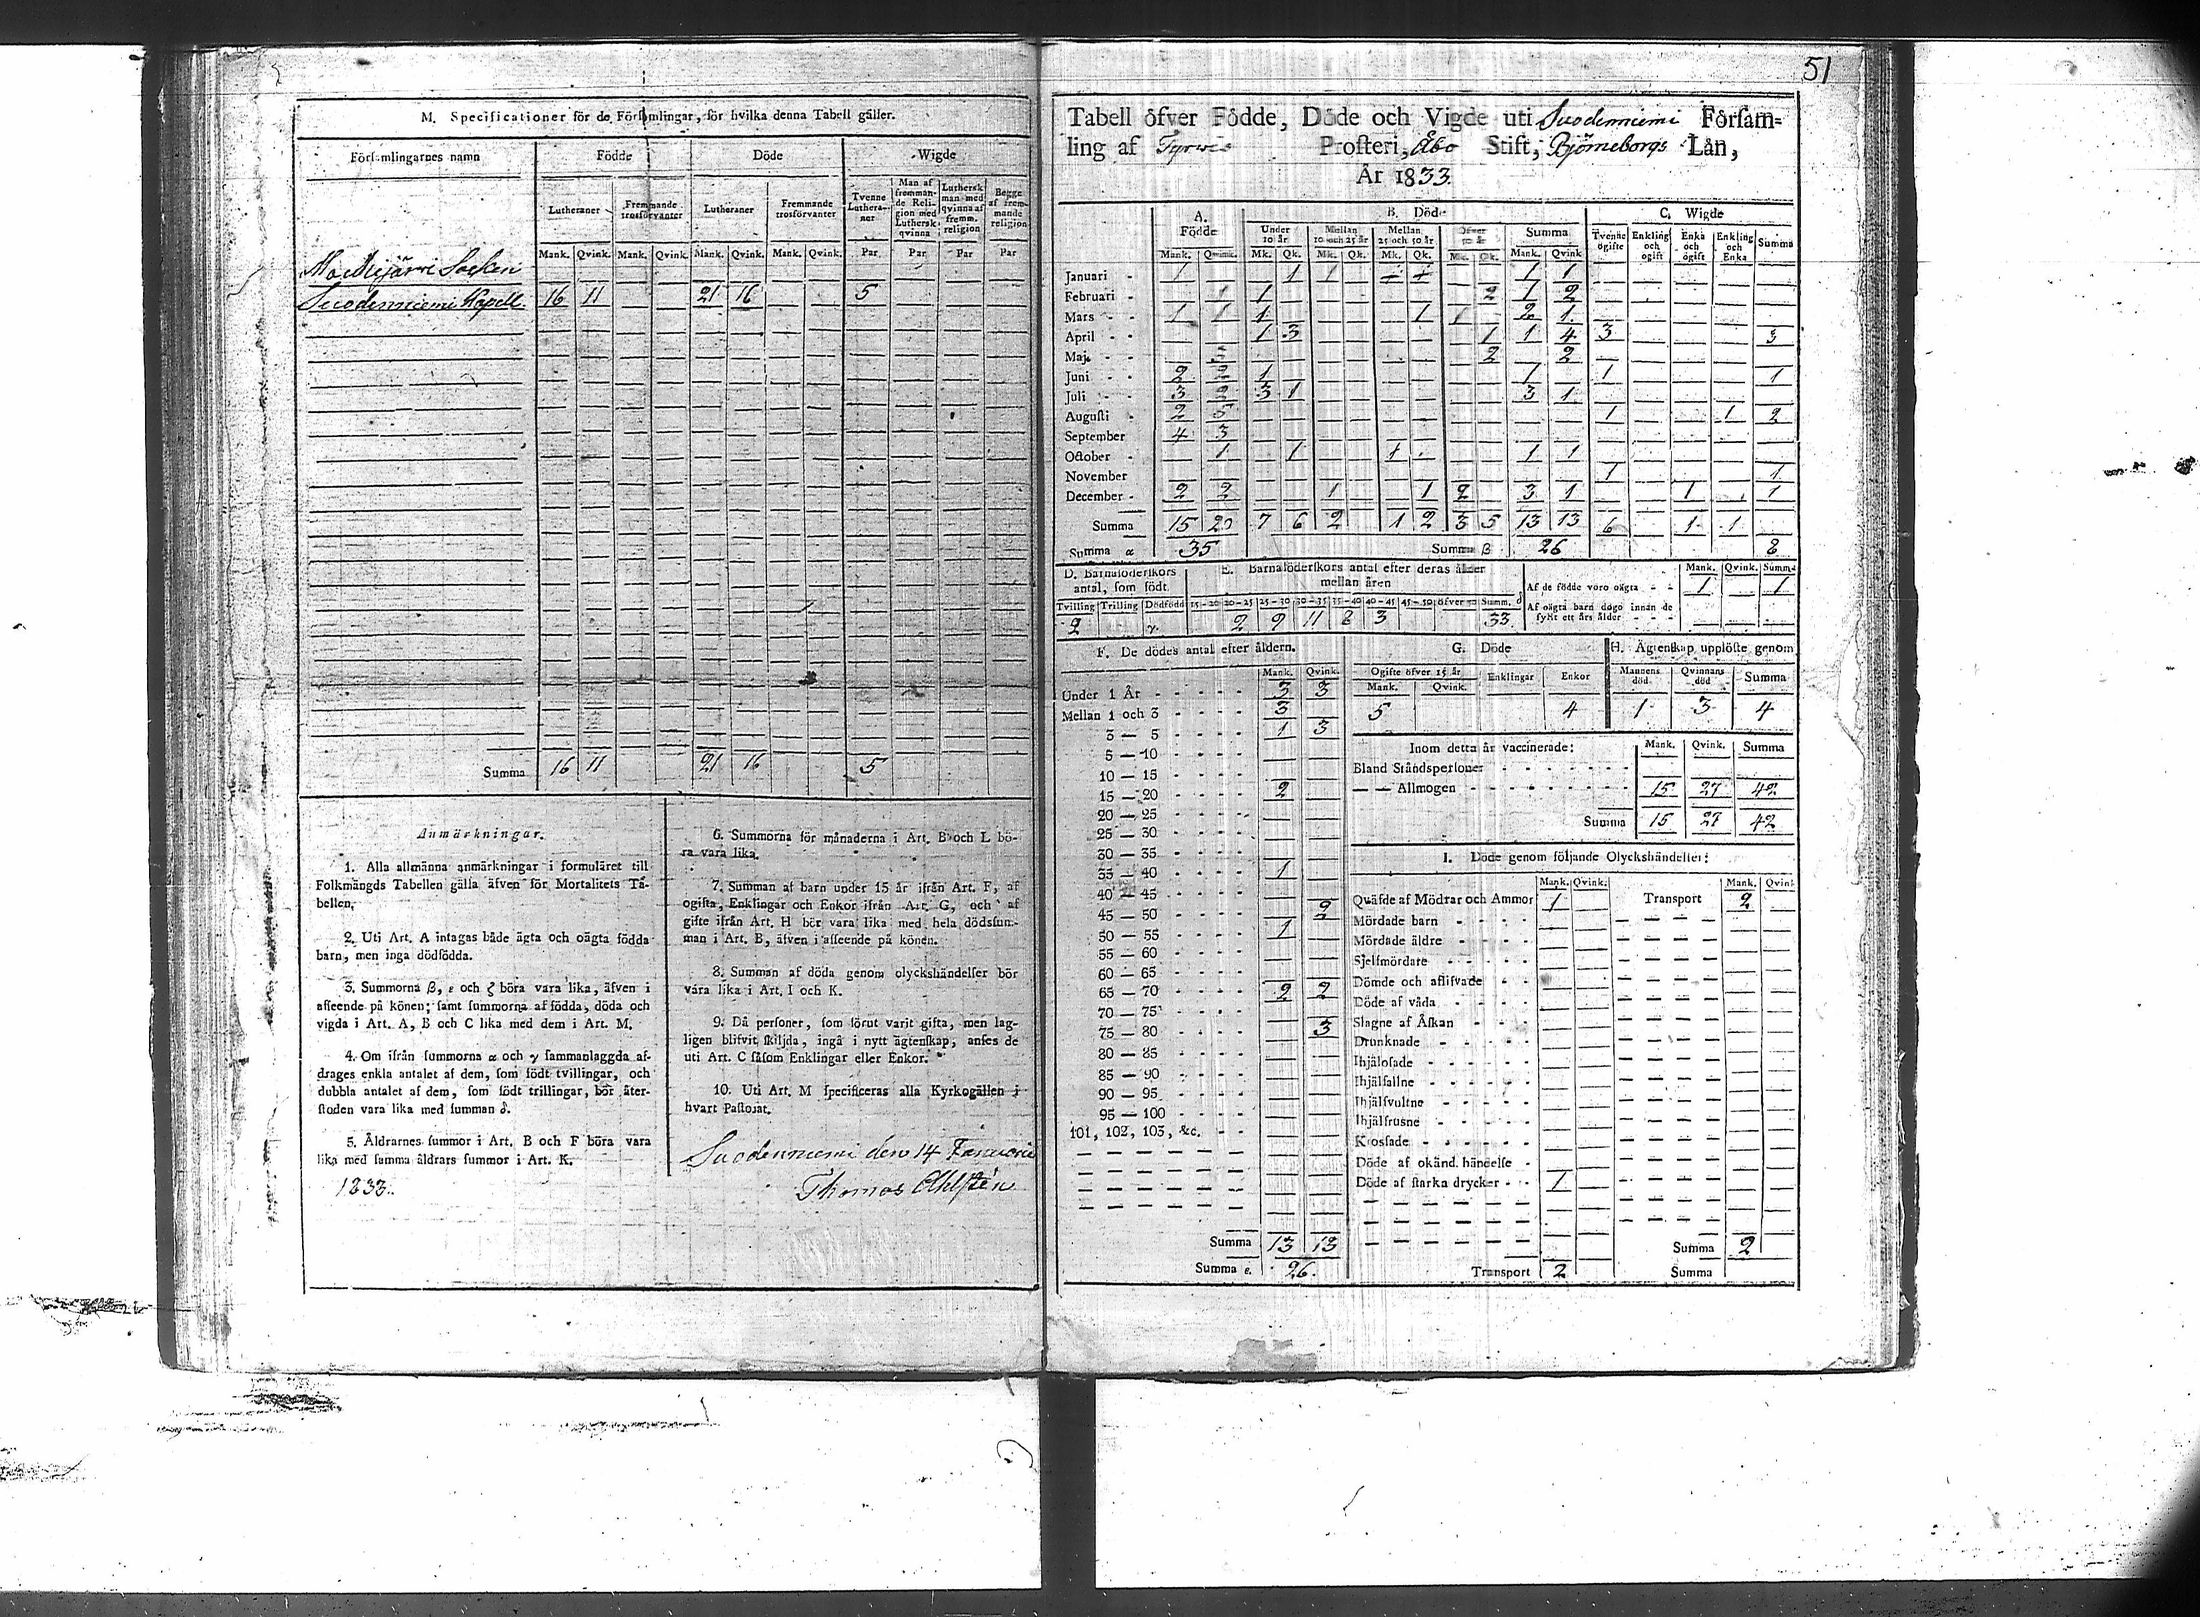 M. Specificationer för de Församlingar, för hvilka denna Tabell gäller.
Församlingarnes namn Födde Döde Wigde
Lutheraner Fremmande trosförvanter Lutheraner Fremmande trosförvanter Tvenne Lutheraner Man af fremmande Religion med Luthersk qvinna Luthersk man med qvinna af fremm. religion Begge af fremmande religion
Mank. Qvink. Mank. Qvink. Mank. Qvink. Mank. Qvink. Par Par Par Par
Socken
Suodenniemi Kapell 16 11 21 16 5
Summa 16 11 21 16 5
Anmärkningar.
1. Alla allmänna anmärkningar i formuläret till
Folkmängds Tabellen gälla äfven för Mortalitets Ta-
bellen.
2. Uti Art. A intagas både ägta och oägta födda
barn, men inga dödfödda.
3. Summorna β, ε och ζ böra vara lika, äfven i
affeende på könen; samt summorna af födda, döda och
vigda i Art. A, B och C lika med dem i Art. M.
4. Om ifrån summorna α och γ sammanlaggda af-
drages enkla antalet af dem, som födt tvillingar, och
dubbla antalet af dem, som födt trillingar, bör åter-
stoden vara lika med summan δ.
5. Åldrarnes summor i Art. B och F böra vara
lika med samma åldrars summor i Art. K.
1833.
6. Summorna för månaderna i Art. B och L bö-
ra vara lika.
7. Summan af barn under 15 år ifrån Art. F, af
ogifta, Enklingar och Enkor ifrån Art. G, och af
gifte ifrån Art. H bör vara lika med hela dödssum-
man i Art. B, äfven i affeende på könen.
8. Summan af döda genom olyckshändelser bör
vara lika i Art. I och K.
9. Då personer, som förut varit gifta, men lag-
ligen blifvit skiljda, ingå i nytt ägtenskap, anses de
uti Art. C såsom Enklingar eller Enkor.
10. Uti Art. M specificeras alla Kyrkogällen i
hvart Pastorat.
Suodenniemi den 14 Januarii
Thomas Ahlstén
51
Tabell öfver Födde, Döde och Vigde uti Suodenniemi Försam=
ling af Tyrvis Prosteri, Åbo Stift, Björneborgs Län,
År 1833.
A. Födde B. Döde C. Wigde
Under 10 år Mellan 10 och 25 år Mellan 25 och 50 år Öfver 50 år Summa Tvenne ogifte Enkling och ogift Enka och ogift Enkling och Enka Summa
Mank. Qvink. Mk. Qk. Mk. Qk. Mk. Qk. Mk. Qk. Mank. Qvink
Januari 1 1 1 1 1
Februari 1 1 2 1 2
Mars 1 1 1 1 1 2 1
April 1 3 1 1 4 3 3
Maj 2 2
Juni 2 2 1 1 1 1
Juli 3 2 3 1 3 1
Augusti 2 5 1 1 2
September 4 3
October 1 1 1 1 1
November 1 1
December 2 2 1 1 2 3 1 1 1
Summa 15 20 7 6 2 1 2 3 5 13 13 6 1 1
Summa α 35 Summa β 26 8
D. Barnaföderskors antal, som födt E. Barnaföderskors antal efter deras ålder mellan åren Mank. Qvink. Summa
Tvilling Trilling Dödfödd 15-20 20-25 25-30 30-35 35-40 40-45 45-50 öfver 50 Summ. δ
2 γ. 2 9 11 8 3 33.
Af de födde voro oägta 1 1
Af oägta barn dogo innan de
fyllt ett års ålder
F. De dödes antal efter åldern.
Mank. Qvink.
Under 1 År 3 3
Mellan 1 och 3 3
3 — 5 1 3
5 — 10
10 — 15
15 — 20 2
20 — 25
25 — 30
30 — 35
35 — 40 1
40 — 45
45 — 50 2
50 — 55 1
55 — 60
60 — 65
65 — 70 2 2
70 — 75
75 — 80 3
80 — 85
85 — 90
90 — 95
95 — 100
101, 102, 103, &c.
Summa 13 13
Summa ε. 26.
G. Döde H. Ägtenskap upplöste genom
Ogifte öfver 15 år Enklingar Enkor Mannens död Qvinnans död Summa
Mank. Qvink.
5 4 1 3 4
Inom detta år vaccinerade: Mank. Qvink. Summa
Bland Ståndspersoner
— — Allmogen 15 27 42
Summa 15 27 42
I. Döde genom följande Olyckshändelser:
Mank. Qvink. Mank. Qvink
Qväfde af Mödrar och Ammor 1 Transport 2
Mördade barn
Mördade äldre
Sjelfmördare
Dömde och aflifvade
Döde af våda
Slagne af Åskan
Drunknade
Ihjälosade
Ihjälfallne
Ihjälsvultne
Ihjälfrusne
Krossade
Döde af okänd. händelse
Döde af starka drycker 1
Summa 2
Transport 2 Summa